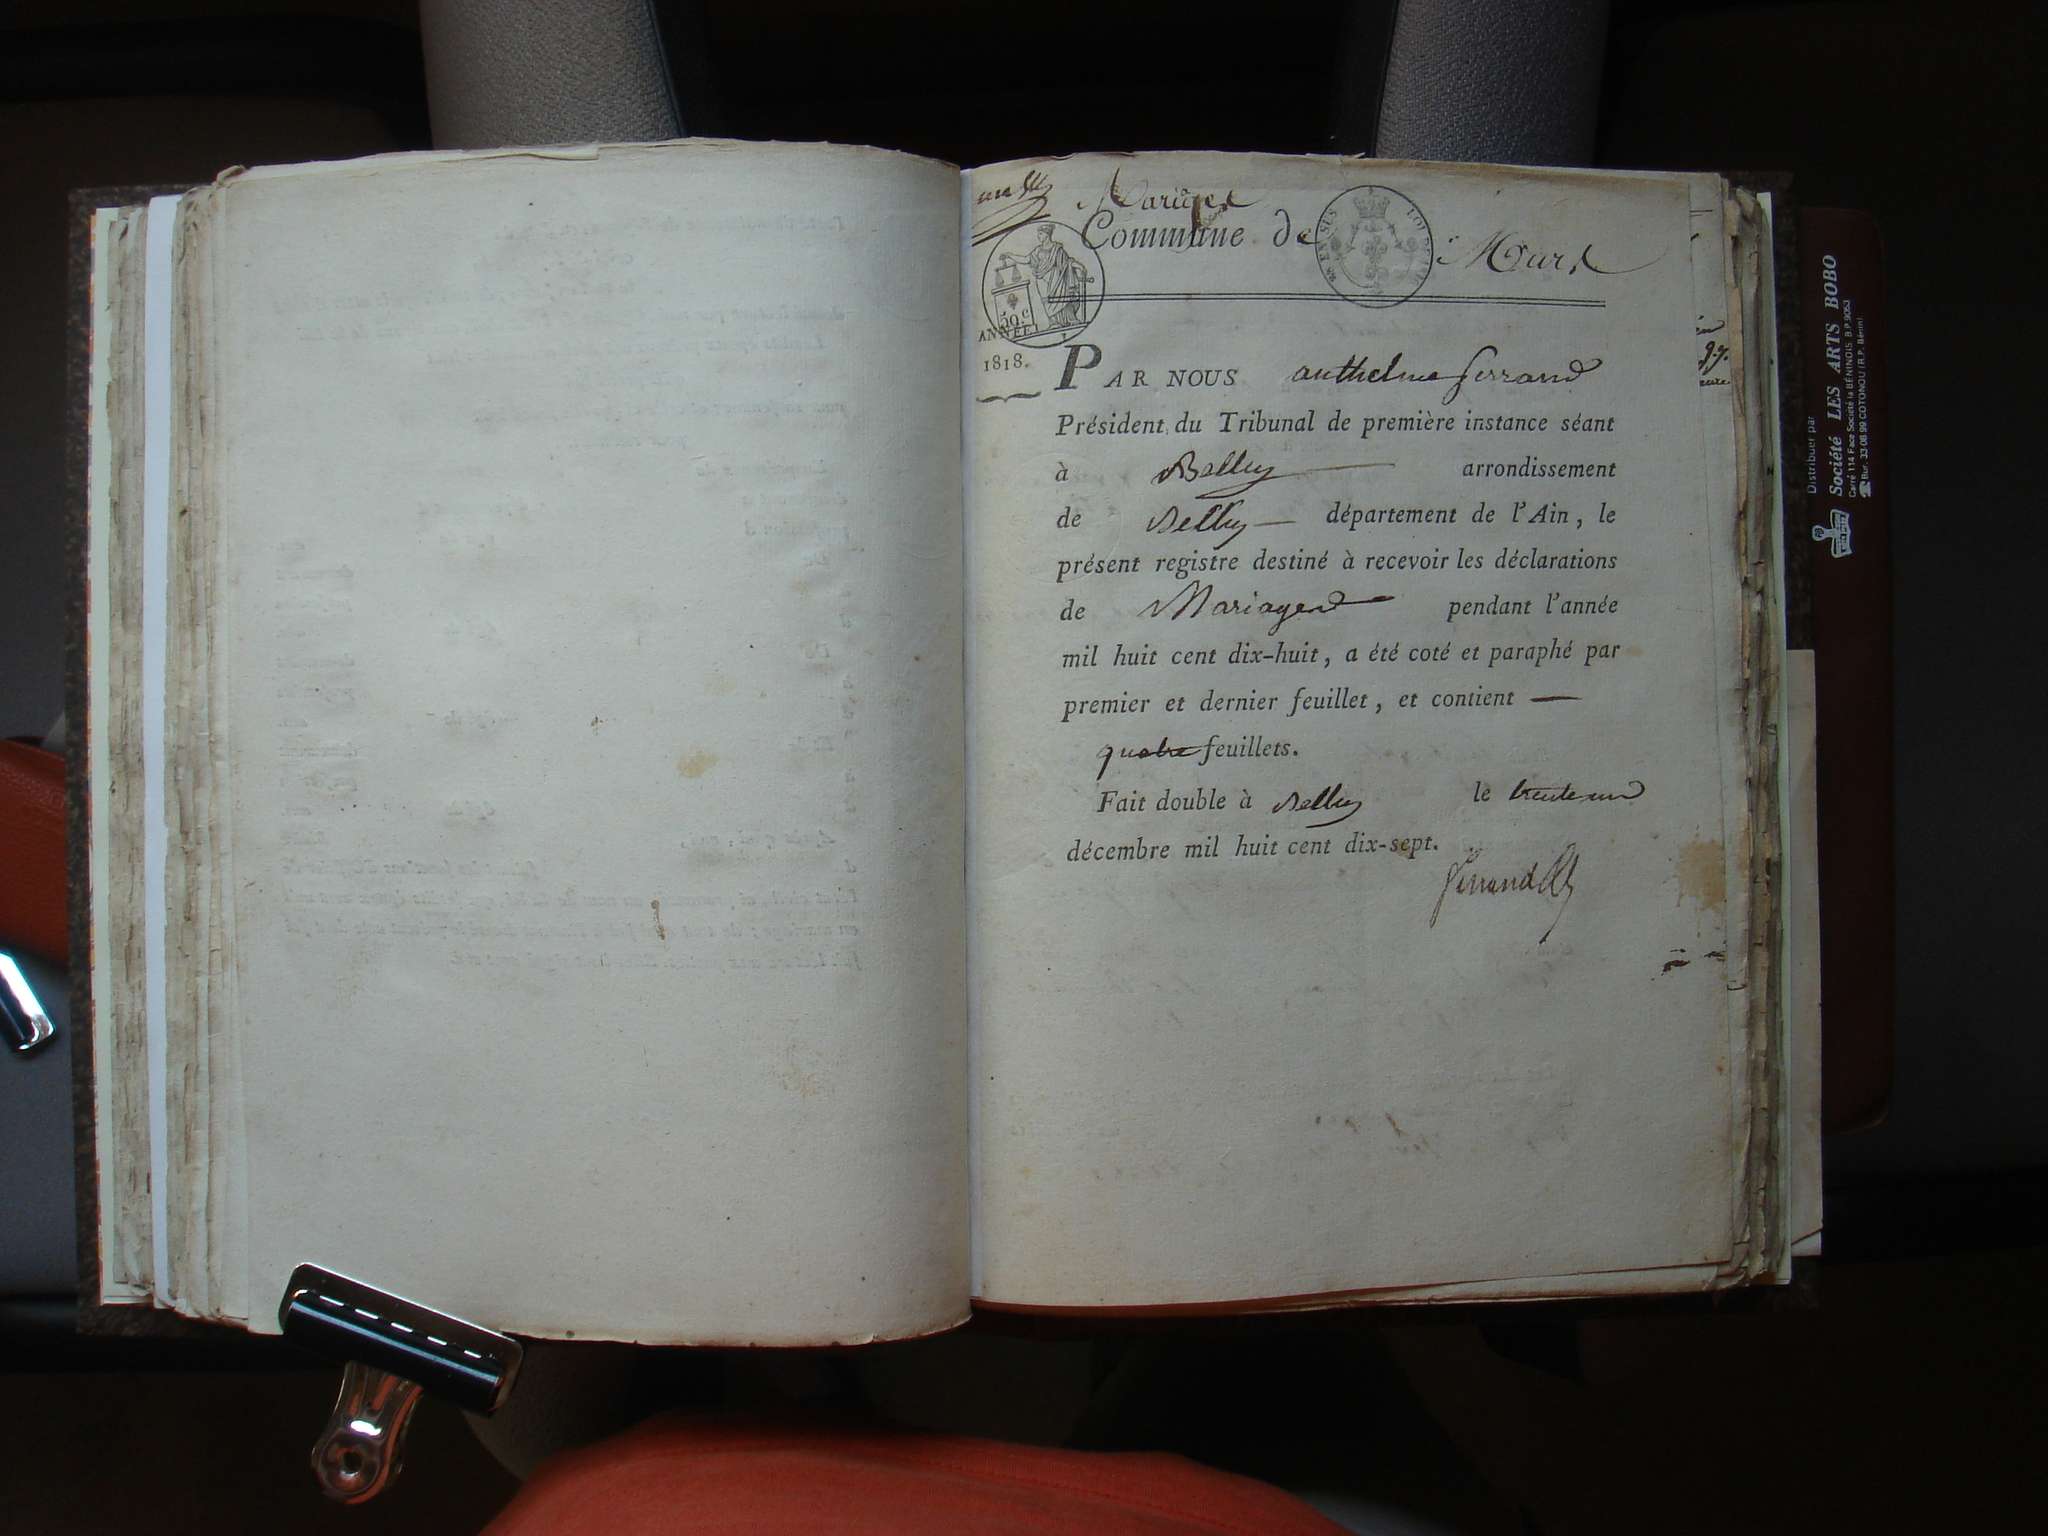 Mariages
Commune de Murs
50 c
ANNÉE
1818.
PAR NOUS anthelme ferrand
Président du Tribunal de première instance séant
à Belley arrondissement
de Belley département de l'Ain, le
présent registre destiné à recevoir les déclarations
de Mariages pendant l'année
mil huit cent dix-huit, a été coté et paraphé par
premier et dernier feuillet, et contient —
quatre feuillets.
Fait double à Belley le trente un
décembre mil huit cent dix-sept.
Distribuer par
Société LES ARTS BOBO
Carré 114 Face Société la BÉNINOIS B.P.9053
Bur. 33 08 99 COTONOU (R.P. Bénin)